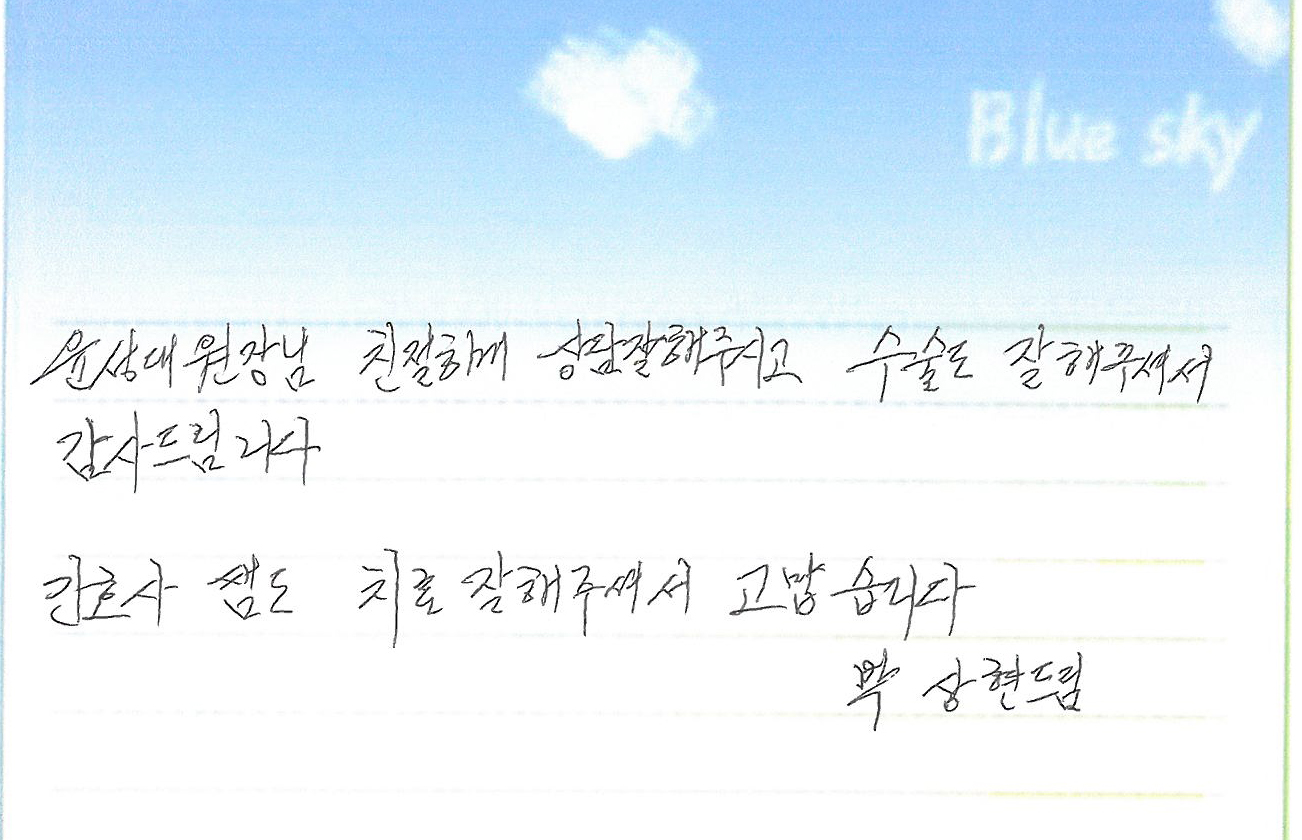 Blue sky
윤상대 원장님 친절하게 상담잘해주시고 수술도 잘해주셔서
감사드림니다
간호사 쌤도 치료 잘해주셔서 고맙습니다
박상현드림